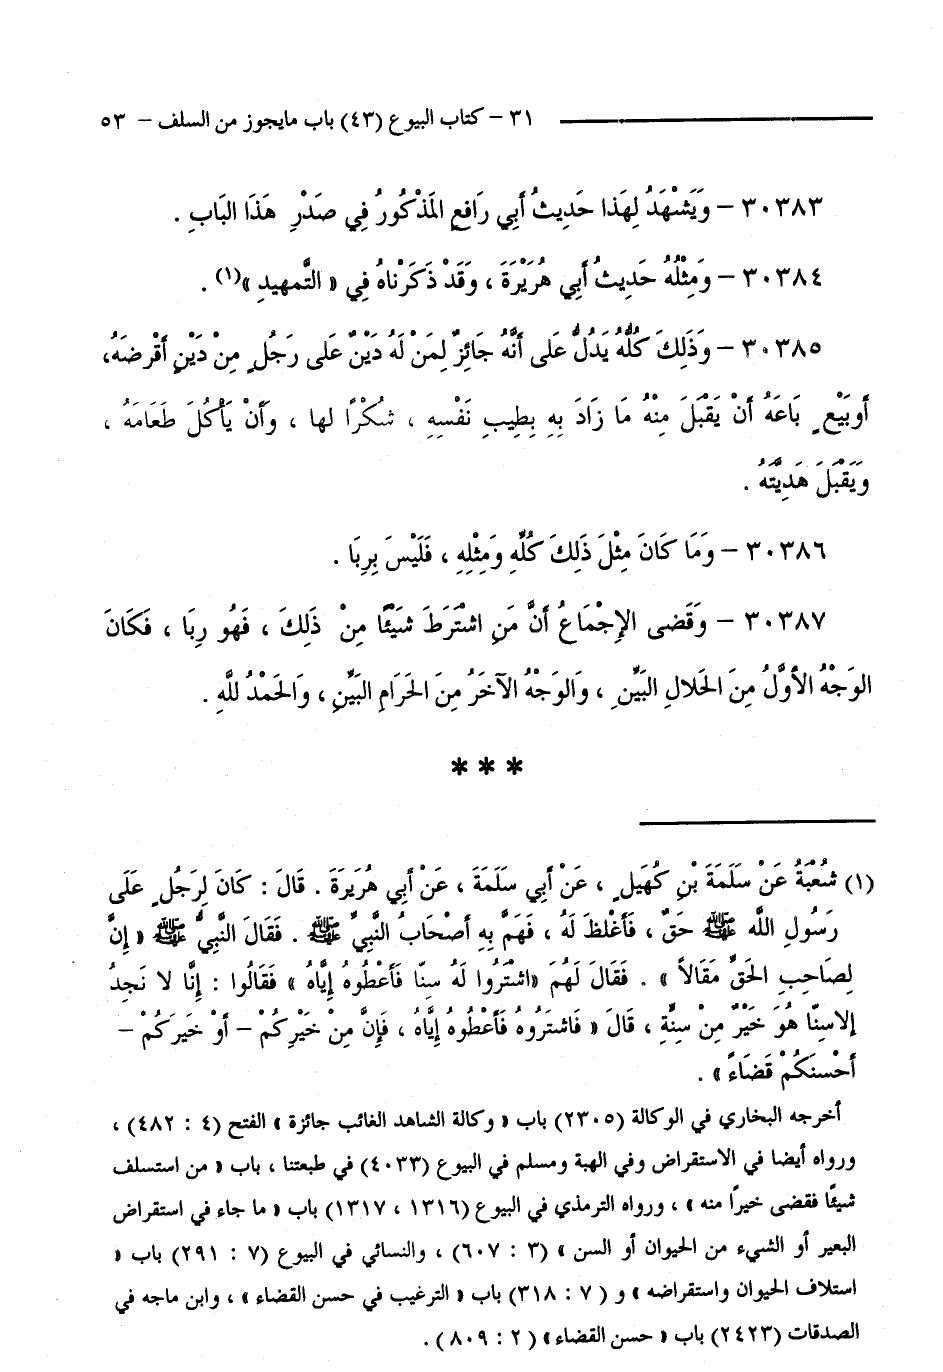 ٣١ – كتاب البيوع (٤٣) باب مايجوز من السلف – ٥٣
٣٠٣٨٣ – وَيَشْهَدُ لِهَذا حَدِيثُ أَبِي رَافِعٍ المَذْكُورُ فِي صَدْرِ هَذَا البَابِ .
٣٠٣٨٤ – وَمِثْلُهُ حَدِيثُ أَبِي هُرَيْرَةَ ، وَقَدْ ذَكَرْنَاهُ فِي « التَّمهِيدِ »(١) .
٣٠٣٨٥ – وَذَلِكَ كُلُّهُ يَدُلُّ عَلى أَنَّهُ جَائِزٌ لِمَنْ لَهُ دَيْنٌ عَلى رَجُلٍ مِنْ دَيْنٍ أَقْرضَهُ،
أَوبَيْعٍ بَاعَهُ أَنْ يَقْبَلَ مِنْهُ مَا زَادَ بِهِ بِطِيبِ نَفْسِهِ ، شُكْرًا لها ، وَأَنْ يَأْكُلَ طَعَامَهُ ،
وَيَقْبَلَ هَدِيَّتَهُ .
٣٠٣٨٦ – وَمَا كَانَ مِثْلَ ذَلِكَ كُلِّهِ وَمِثْلِهِ ، فَلَيْسَ بِرِبَا .
٣٠٣٨٧ – وَقَضى الإِجْمَاعُ أَنَّ مَنِ اشْتَرَطَ شَيْئًا مِنْ ذَلِكَ ، فَهُو رِبَا ، فَكَانَ
الوَجْهُ الأَوَّلُ مِنَ الحَلالِ البَيِّنِ ، وَالوَجْهُ الآخَرُ مِنَ الحَرَامِ البَيِّنِ ، وَالحَمْدُ للَّهِ .
* * *
(١) شُعْبَةُ عَنْ سَلَمَةَ بْنِ كُهَيلٍ ، عَنْ أَبِي سَلَمَةَ ، عَنْ أَبِي هُرَيَرَةَ . قَالَ : كَانَ لِرَجُلٍ عَلَى
رَسُولِ اللَّه ﷺ حَقٌ ، فَأَغْلظَ لَهُ ، فَهَمَّ بِهِ أَصْحَابُ النَّبِيِّ ﷺ . فَقَالَ النَّبِيُّ ﷺ « إِنَّ
لِصَاحِبِ الحَقِّ مَقَالاً » . فَقَالَ لَهُمَ «اشْتَرُوا لَهُ سِنّا فَأَعْطُوهُ إِيَّاهُ » فَقَالُوا : إِنَّا لا نَجِدُ
إِلاسِنّا هُوَ خَيْرٌ مِنْ سِنِّهِ ، قَالَ « فَاشتَرُوهُ فَأَعْطُوهُ إِيَّاهُ ، فَإِنَّ مِنْ خَيْرِكُمْ – أَوْ خَيرَكُمْ –
أَحْسنَكُمْ قَضَاءً » .
أخرجه البخاري في الوكالة (٢٣٠٥) باب « وكالة الشاهد الغائب جائزة » الفتح (٤ : ٤٨٢) ،
ورواه أيضا في الاستقراض وفي الهبة ومسلم في البيوع (٤٠٣٣) في طبعتنا ، باب « من استسلف
شيئًا فقضى خيرًا منه » ، ورواه الترمذي في البيوع (١٣١٦ ، ١٣١٧) باب « ما جاء في استقراض
البعير أو الشيء من الحيوان أو السن » (٣ : ٦٠٧) ، والنسائي في البيوع (٧ : ٢٩١) باب «
استلاف الحيوان واستقراضه » و ( ٧ : ٣١٨) باب « الترغيب في حسن القضاء » ، وابن ماجه في
الصدقات (٢٤٢٣) باب « حسن القضاء » (٢ : ٨٠٩) .